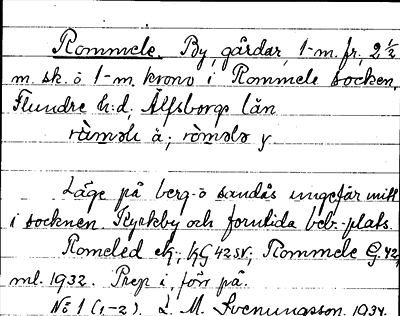 Rommele. By, gårdar, 1-m. fr., 2 1/2
m. sk. o 1-m. krono i Rommele socken,
Flundre h:d, Älfsborgs län
ròmǝlɩ ä; ròmǝlǝ y
Läge på berg- o sandås ungefär mitt
i socknen. Kyrkby och forntida beb.-plats.
Romeled ek; KG 42 SV; Rommele G. 42,
ml. 1932. Prep i, förr på.
No 1 (1-2). L. M. Svenungsson. 1934.